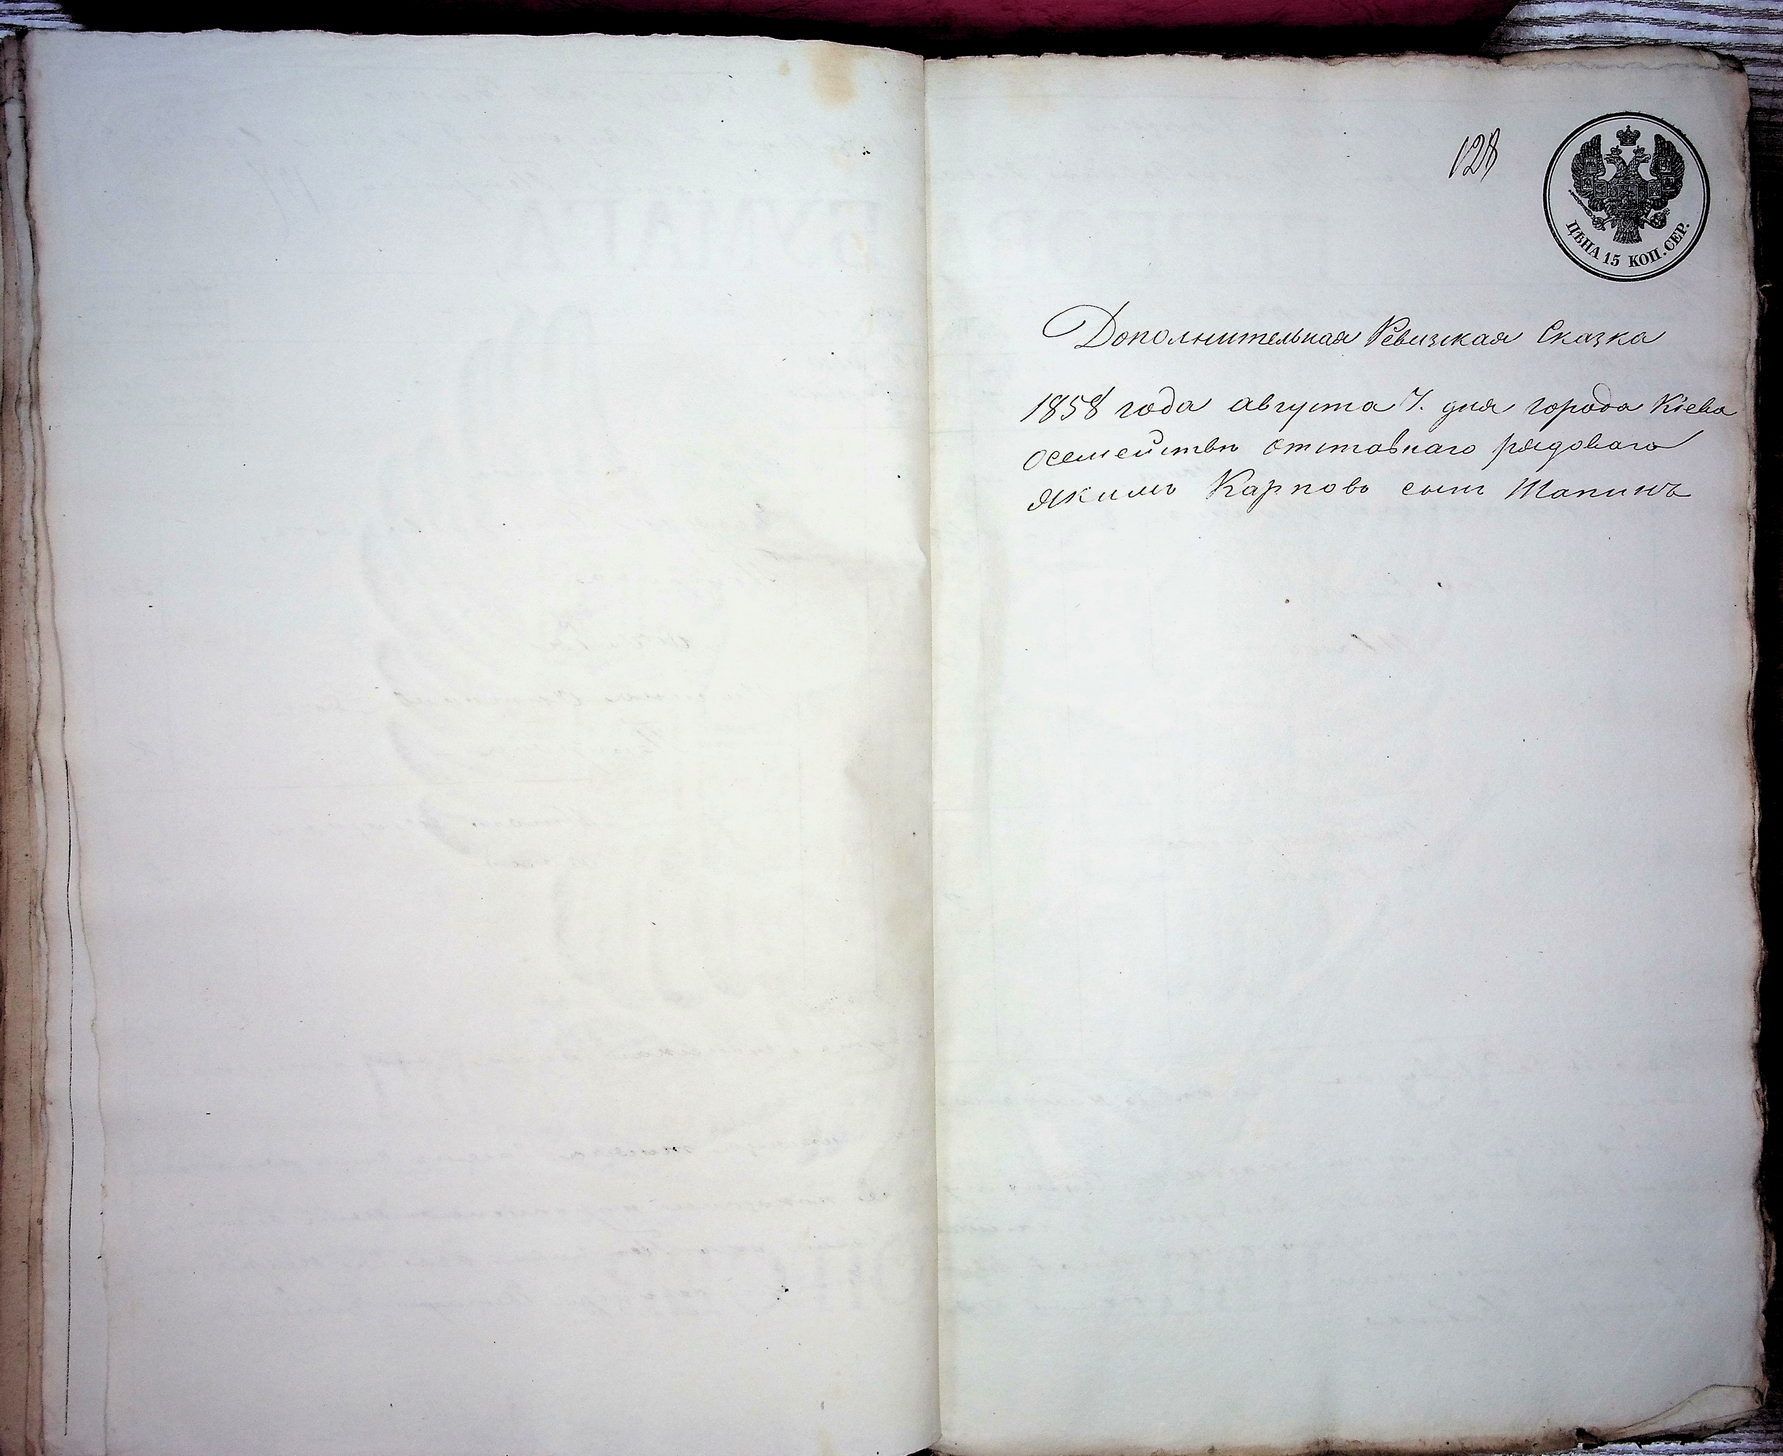 128
ЦѢНА 15 КОП. СЕР.
Дополнительная Ревизкая Сказка
1858 года августа 7. дня города Кіева
осемействѣ отставнаго рядоваго
Якимъ Карповъ сынъ Шапинъ